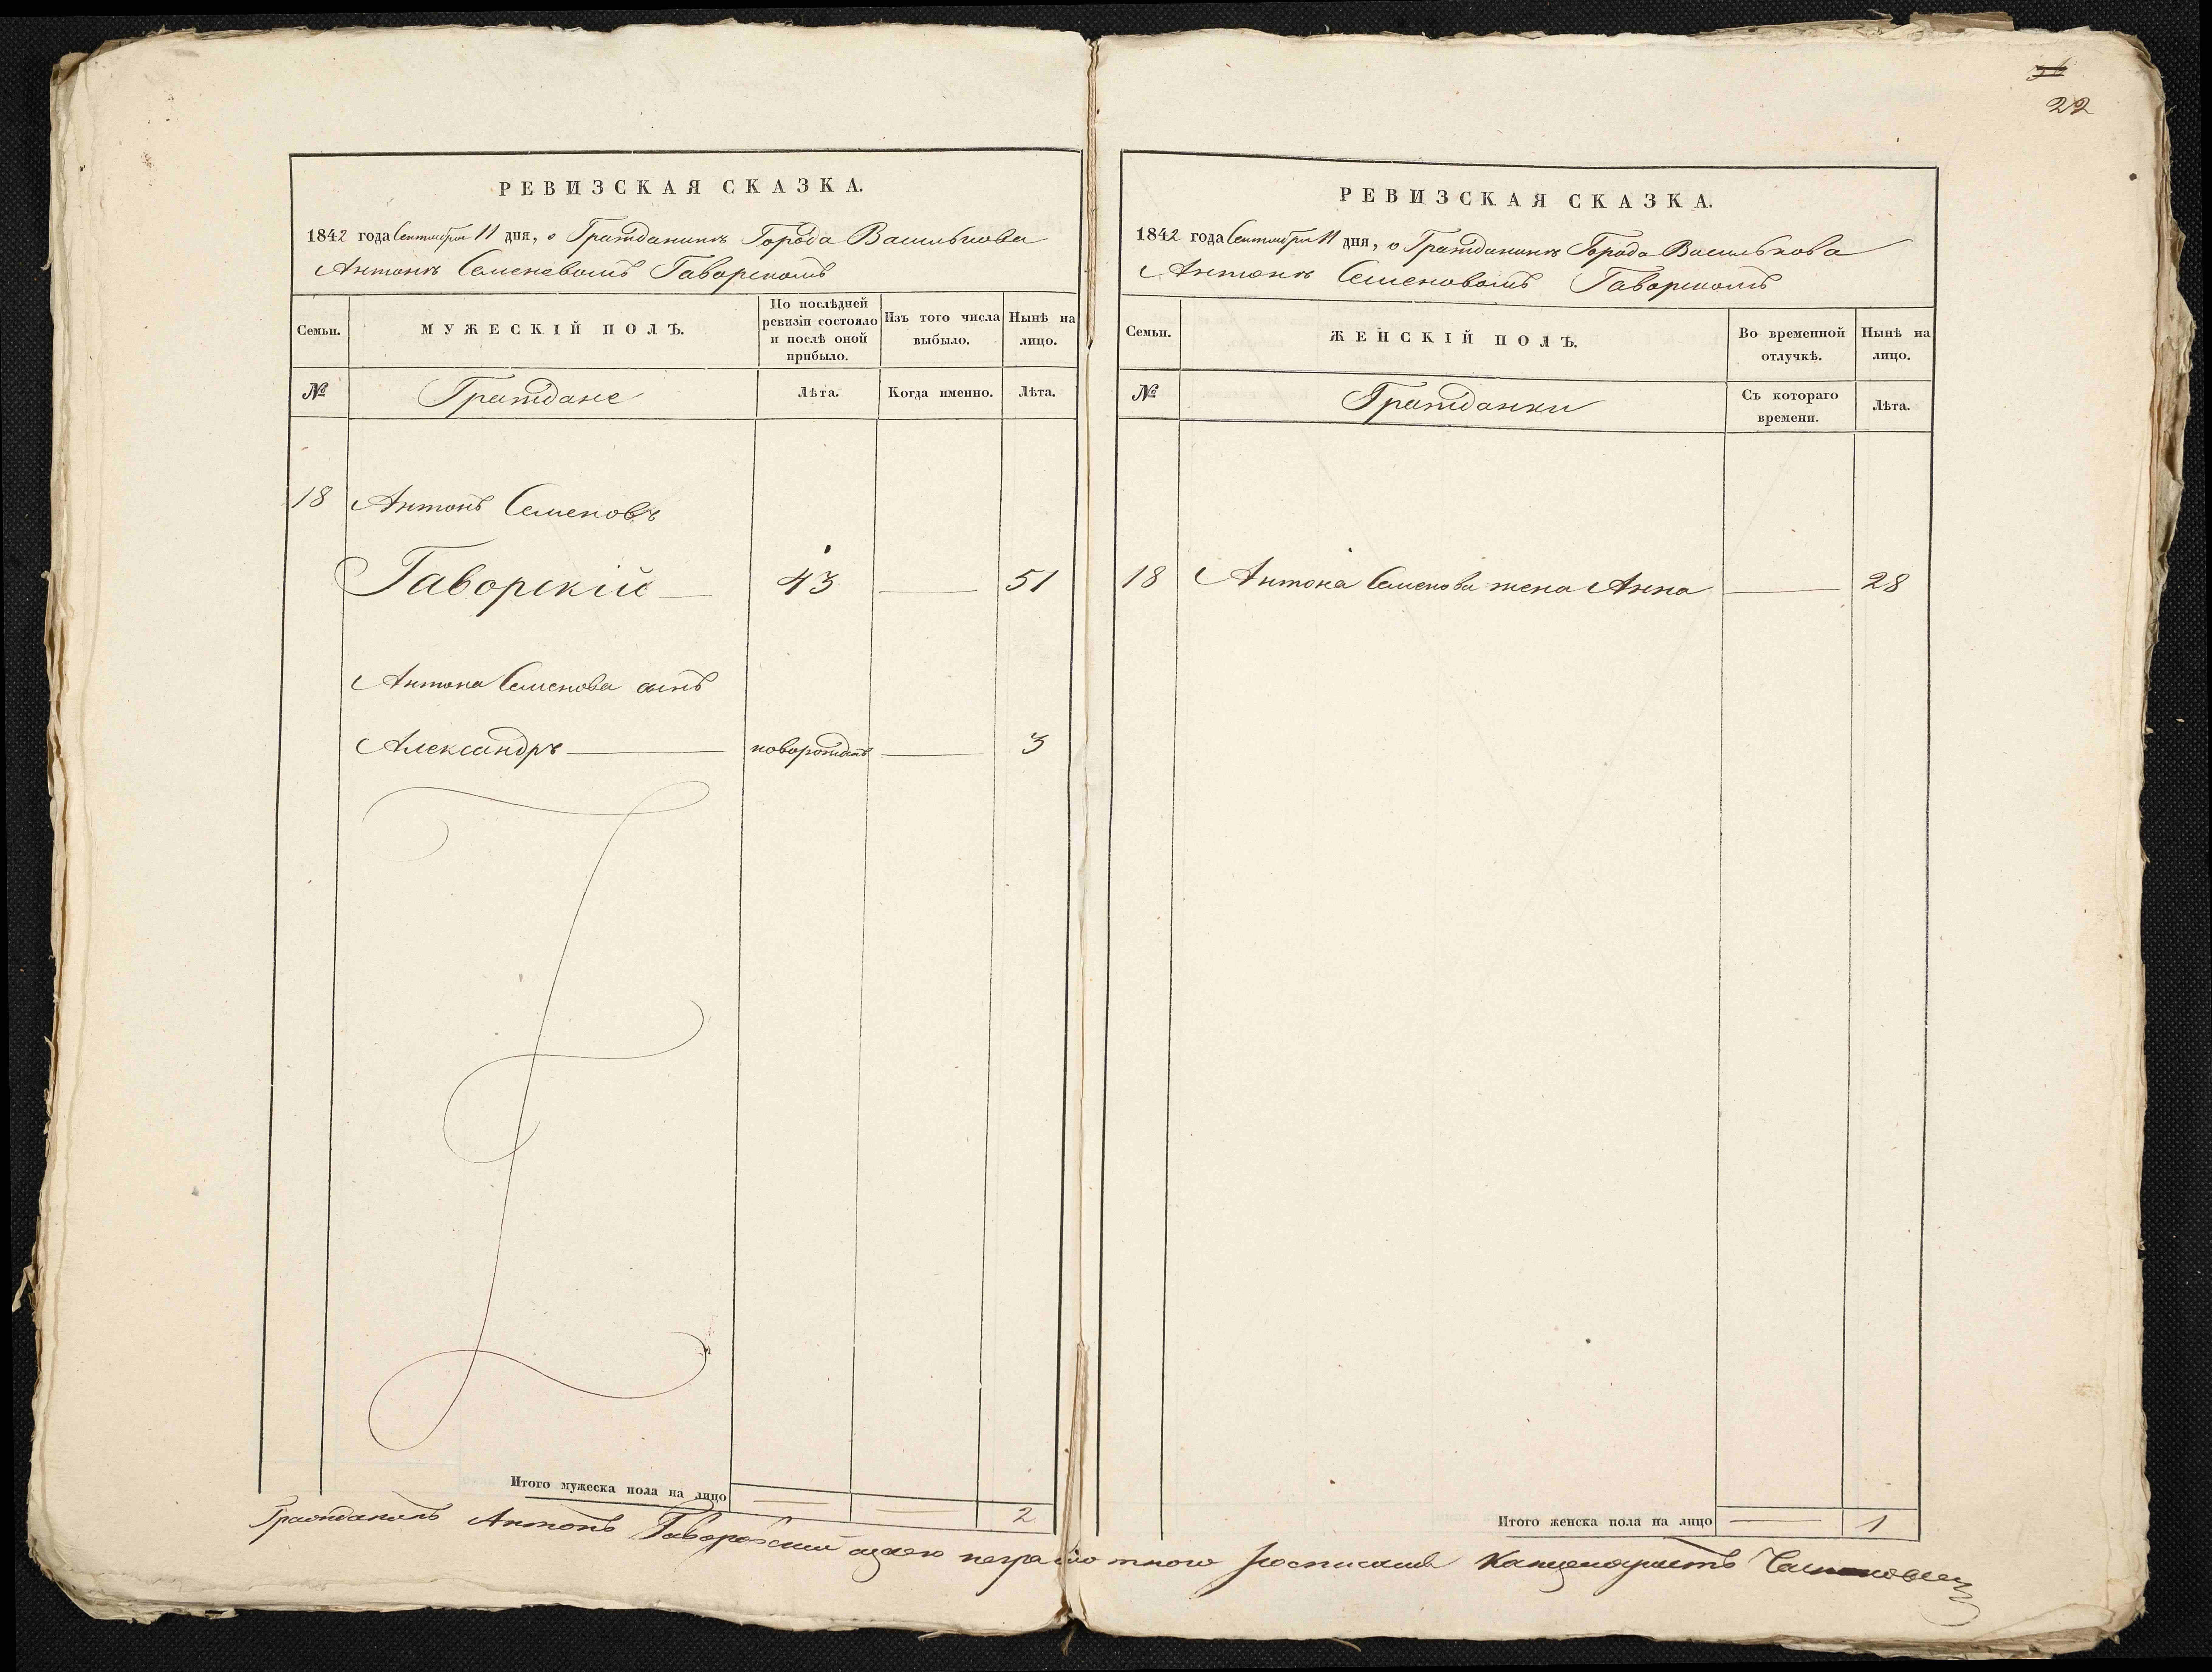 22
РЕВИЗСКАЯ СКАЗКА.
1842 года Сентября 11 дня, о Гражданинѣ Города Василькова
Антонѣ Семеновомъ Гаворскомъ
Семьи.
МУЖЕСКІЙ ПОЛЪ.
По послѣдней ревизіи состояло и послѣ оной прибыло.
Изъ того числа выбыло.
Нынѣ на лицо.
№
Граждане
Лѣта.
Когда именно.
Лѣта.
18 Антонъ Семеновъ
Гаворскій — 43 — 51
Антона Семенова сынъ
Александръ — новорожден — 3
Итого мужеска пола на лицо — — 2
РЕВИЗСКАЯ СКАЗКА.
1842 года Сентября 11 дня, о Гражданинѣ Города Василькова
Антонѣ Семеновомъ Гаворскомъ
Семьи.
ЖЕНСКІЙ ПОЛЪ.
Во временной отлучкѣ.
Нынѣ на лицо.
№
Гражданки
Съ котораго времени.
Лѣта.
18 Антона Семенова жена Анна — 28
Итого женска пола на лицо — 1
Гражданинъ Антонъ Гаворский неграмотного росписался Канцеляристъ